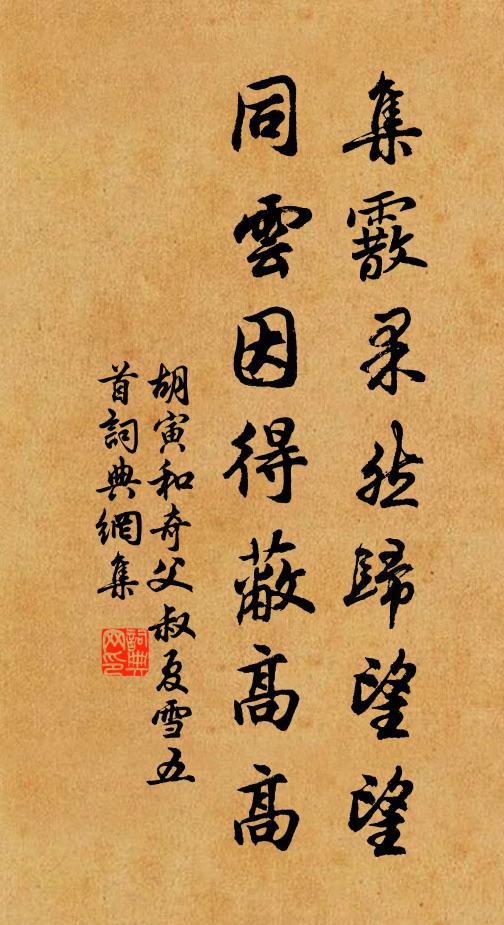 集霰果然歸望望
同雲因得蔽高高
胡寅和奇父叔夏雪五
首詞典網集
詞典
网印